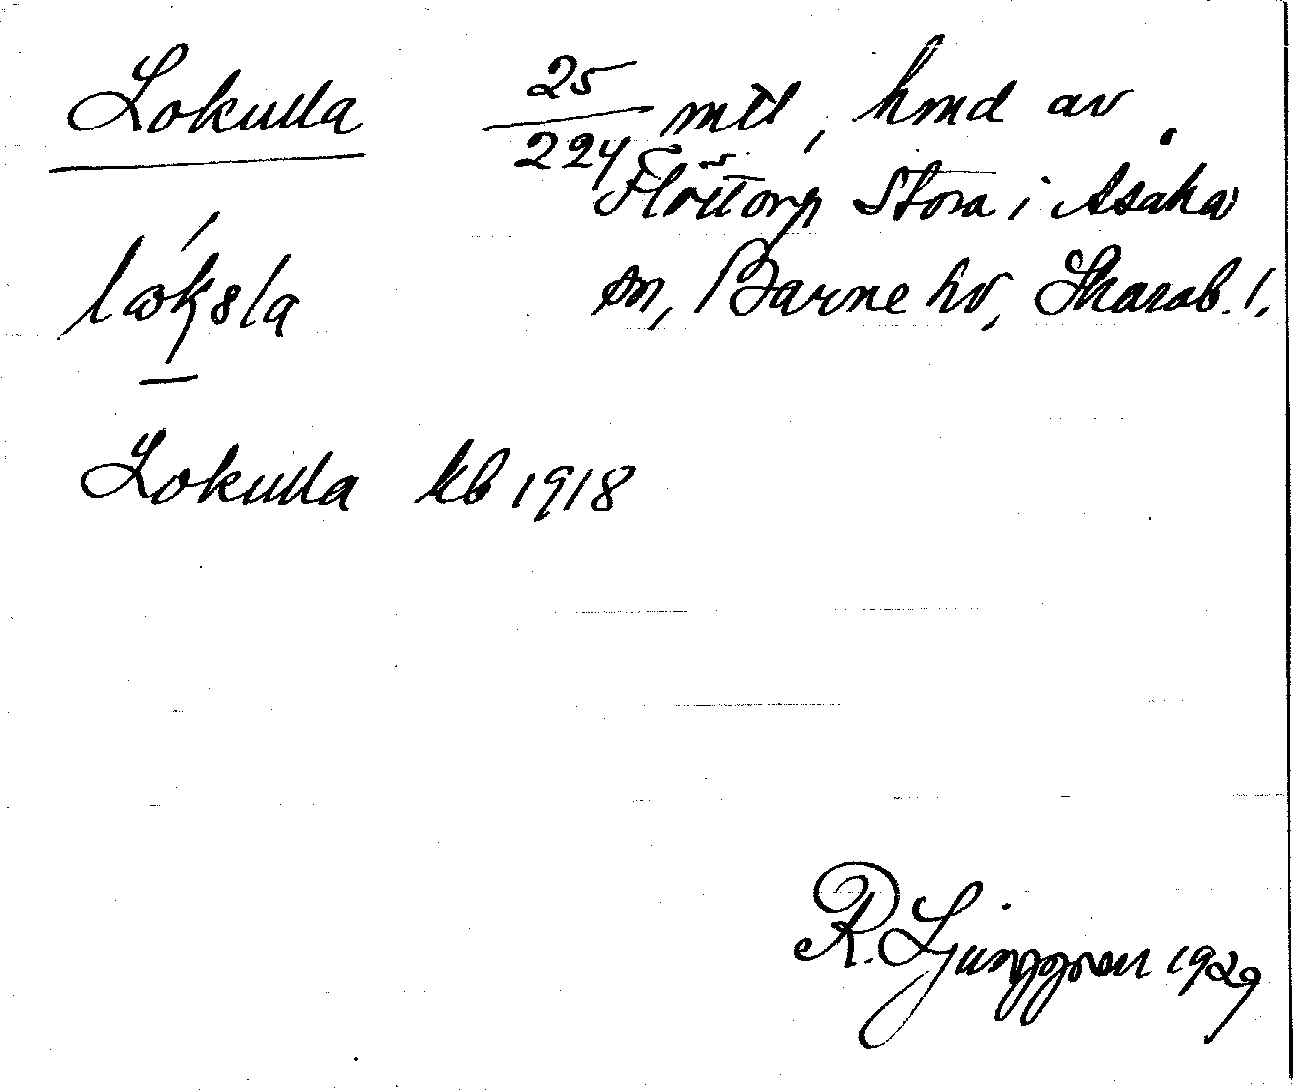 Lokulla 25/224 mtl, hmd av
Flöttorp Stora i Åsaka
sn, Barne hd, Skarab. l.
Lokulla kb 1918
R. Ljunggren 1929